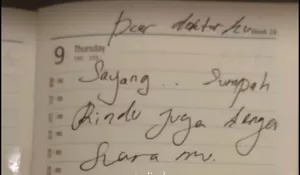 Dear doktor ku
Week 28
9 Thursday
Sayang .. Sumpah
Rindu juga dengan
Suara mu.